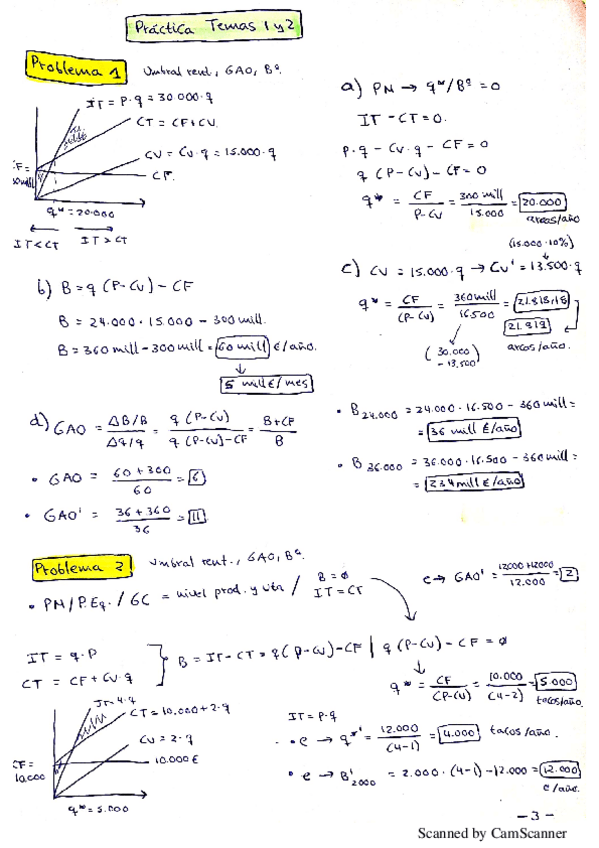 Práctica Temas 1 y 2
Problema 1
Umbral rent., GAO, Bº.
IT = P·q = 30.000·q
CT = CF+CV.
CV = Cu·q = 15.000·q
CF.
CF =
q* = 20.000
IT<CT IT>CT
a) PM → q*/Bº = 0
IT - CT = 0.
P·q - Cu·q - CF = 0
q (P-Cu) - CF = 0
q* = CF/(P-Cu) = 300 mill/15.000 = 20.000
arcos/año
b) B = q (P-Cu) - CF
B = 24.000·15.000 - 300 mill.
B = 360 mill - 300 mill = 60 mill €/año.
↓
5 mill €/mes
(15.000·10%)
c) CV = 15.000·q → CV' = 13.500·q
q* = CF/(P-Cu) = 360 mill/16.500 = 21.818,18
21.819
arcos/año.
(30.000 - 13.500)
• B24.000 = 24.000·16.500 - 360 mill =
= 36 mill €/año
• B36.000 = 36.000·16.500 - 360 mill =
= 234 mill €/año
d) GAO = ΔB/B / Δq/q = q (P-Cu) / q (P-Cu)-CF = B+CF / B
• GAO = 60+300 / 60 = 6
• GAO' = 36+360 / 36 = 11
Problema 2
Umbral rent., GAO, Bº.
• PM/P.Eq./GC = nivel prod. y vta / B = ø
IT = CT
e → GAO' = 12000+12000 / 12.000 = 2
IT = q·P
CT = CF + Cu·q
B = IT - CT = q (P-Cu) - CF | q (P-Cu) - CF = ø
↓
q* = CF/(P-Cu) = 10.000/(4-2) = 5.000
tacos/año.
IT = 4·q
CT = 10.000+2·q
CV = 2·q
10.000 €
CF =
10.000
q* = 5.000
IT = P·q
• e → q*' = 12.000/(4-1) = 4.000 tacos/año.
• e → = 2.000·(4-1) - 12.000 = 12.000
€/año.
- 3 -
Scanned by CamScanner